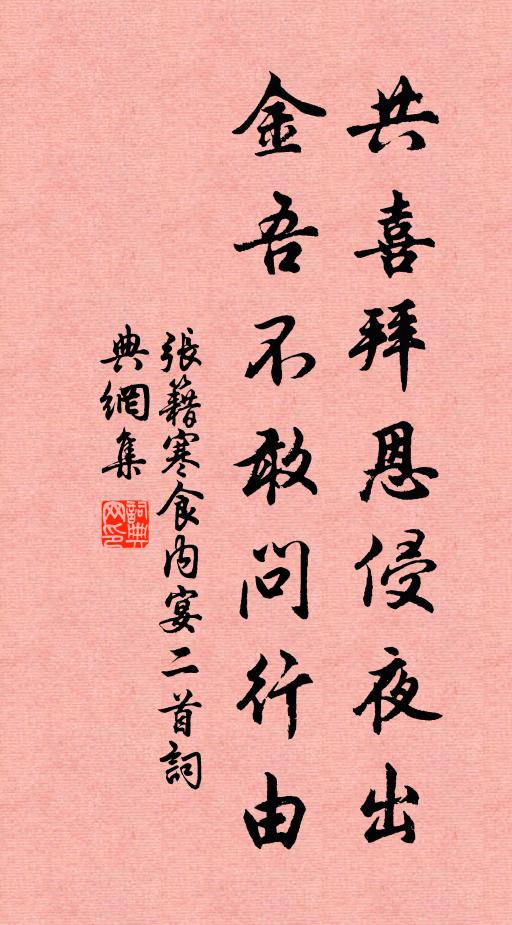 共喜拜恩侵夜出
金吾不敢問行由
張籍寒食內宴二首詞
典網集
詞典
网印